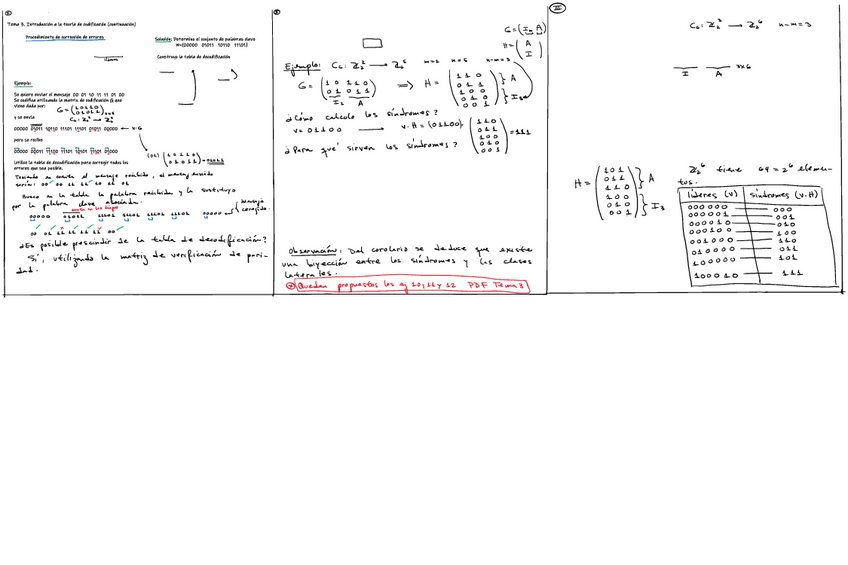 Tema 3. Introducción a la teoría de codificación (continuación)
Procedimiento de corrección de errores.
Solución: Determina el conjunto de palabras clave
W={00000 01011 10110 11101}
Construyo la tabla de decodificación
Ejemplo:
Se quiere enviar el mensaje 00 01 10 11 11 01 00
Se codifica utilizando la matriz de codificación G que
viene dada por:
y se envía
00000 01011 10110 11101 11101 01011 00000
pero se recibe
00000 00011 11100 11101 10101 11101 01000
Utiliza la tabla de decodificación para corregir todos los
errores que sea posible.
Teniendo en cuenta el mensaje recibido, el mensaje enviado
sería:
Busco en la tabla la palabra recibida y la sustituyo
por la palabra clave asociada.
mensaje
corregido.
¿Es posible prescindir de la tabla de decodificación?
Sí, utilizando la matriz de verificación de pari-
dad.
G=(Im A)
H=(A
I)
Ejemplo: C6: Z2² → Z2⁵ m=2 n=5 n-m=3
G = (1 0 1 1 0
0 1 0 1 1)
I2 A
⟹ H =
(1 1 0
0 1 1
1 0 0
0 1 0
0 0 1)
} A
} I3
¿Cómo calculo los síndromes?
v=01100 → v·H = (01100)
(110
011
100
010
001)
=111
¿Para qué sirven los síndromes?
Observación: Del corolario se deduce que existe
una biyección entre los síndromes y las clases
laterales.
Quedan propuestos los ej 10, 11 y 12 PDF Tema 3
II
C6: Z2³ → Z2⁶ n-m=3
I A 3x6
H =
(101
011
110
100
010
001)
} A
} I3
Z2⁶ tiene 64 = 2⁶ elemen-
tos.
líderes (v) síndromes (v·H)
000000 000
000001 001
000010 010
000100 100
001000 110
010000 011
100000 101
100010 111